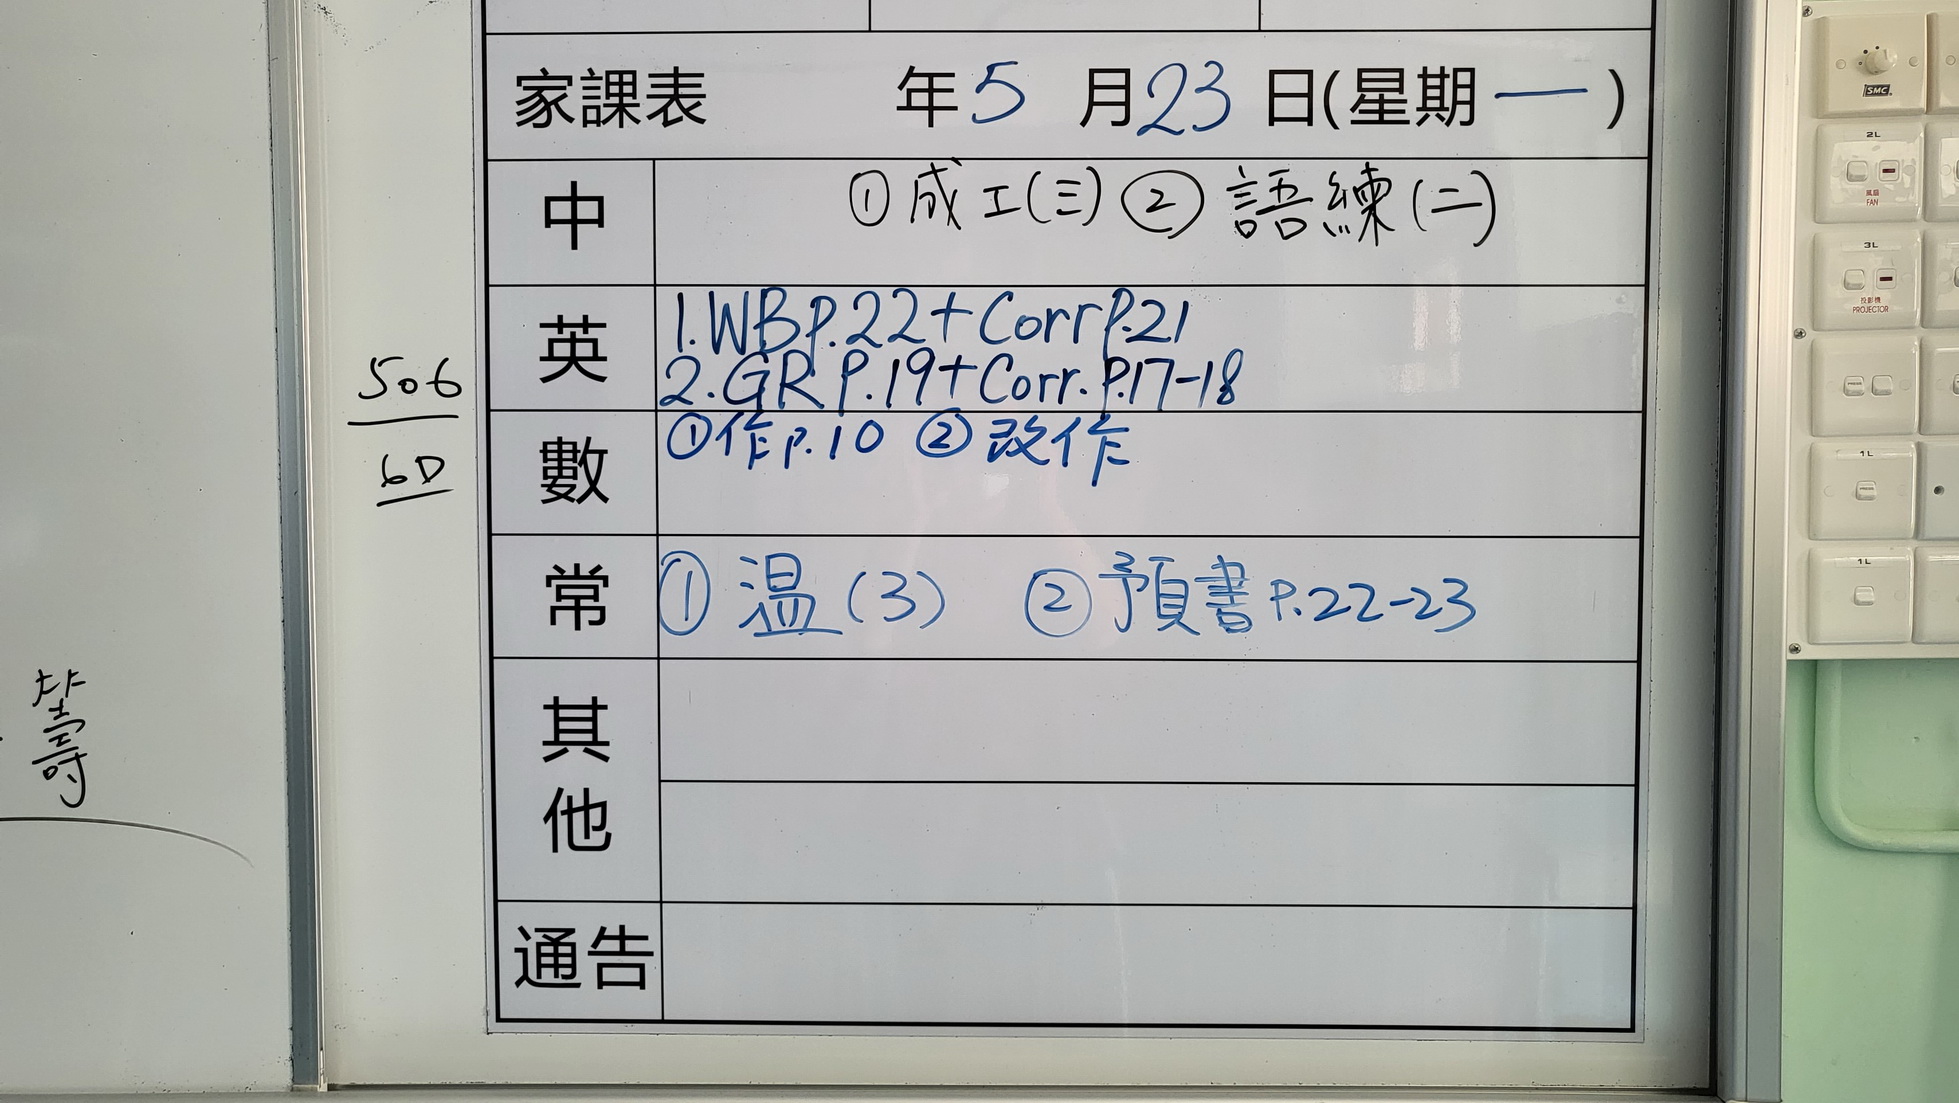 家課表 年5月23日(星期一)
中 ①成工(三) ②語練(二)
英 1.WB P.22+Corr P.21
2.GR P.19+Corr. P.17-18
數 ①作P.10 ②改作
常 ①温(3) ②預書P.22-23
其他
通告
506
6D
籌
SMC
2L
風扇
FAN
3L
投影機
PROJECTOR
1L
1L